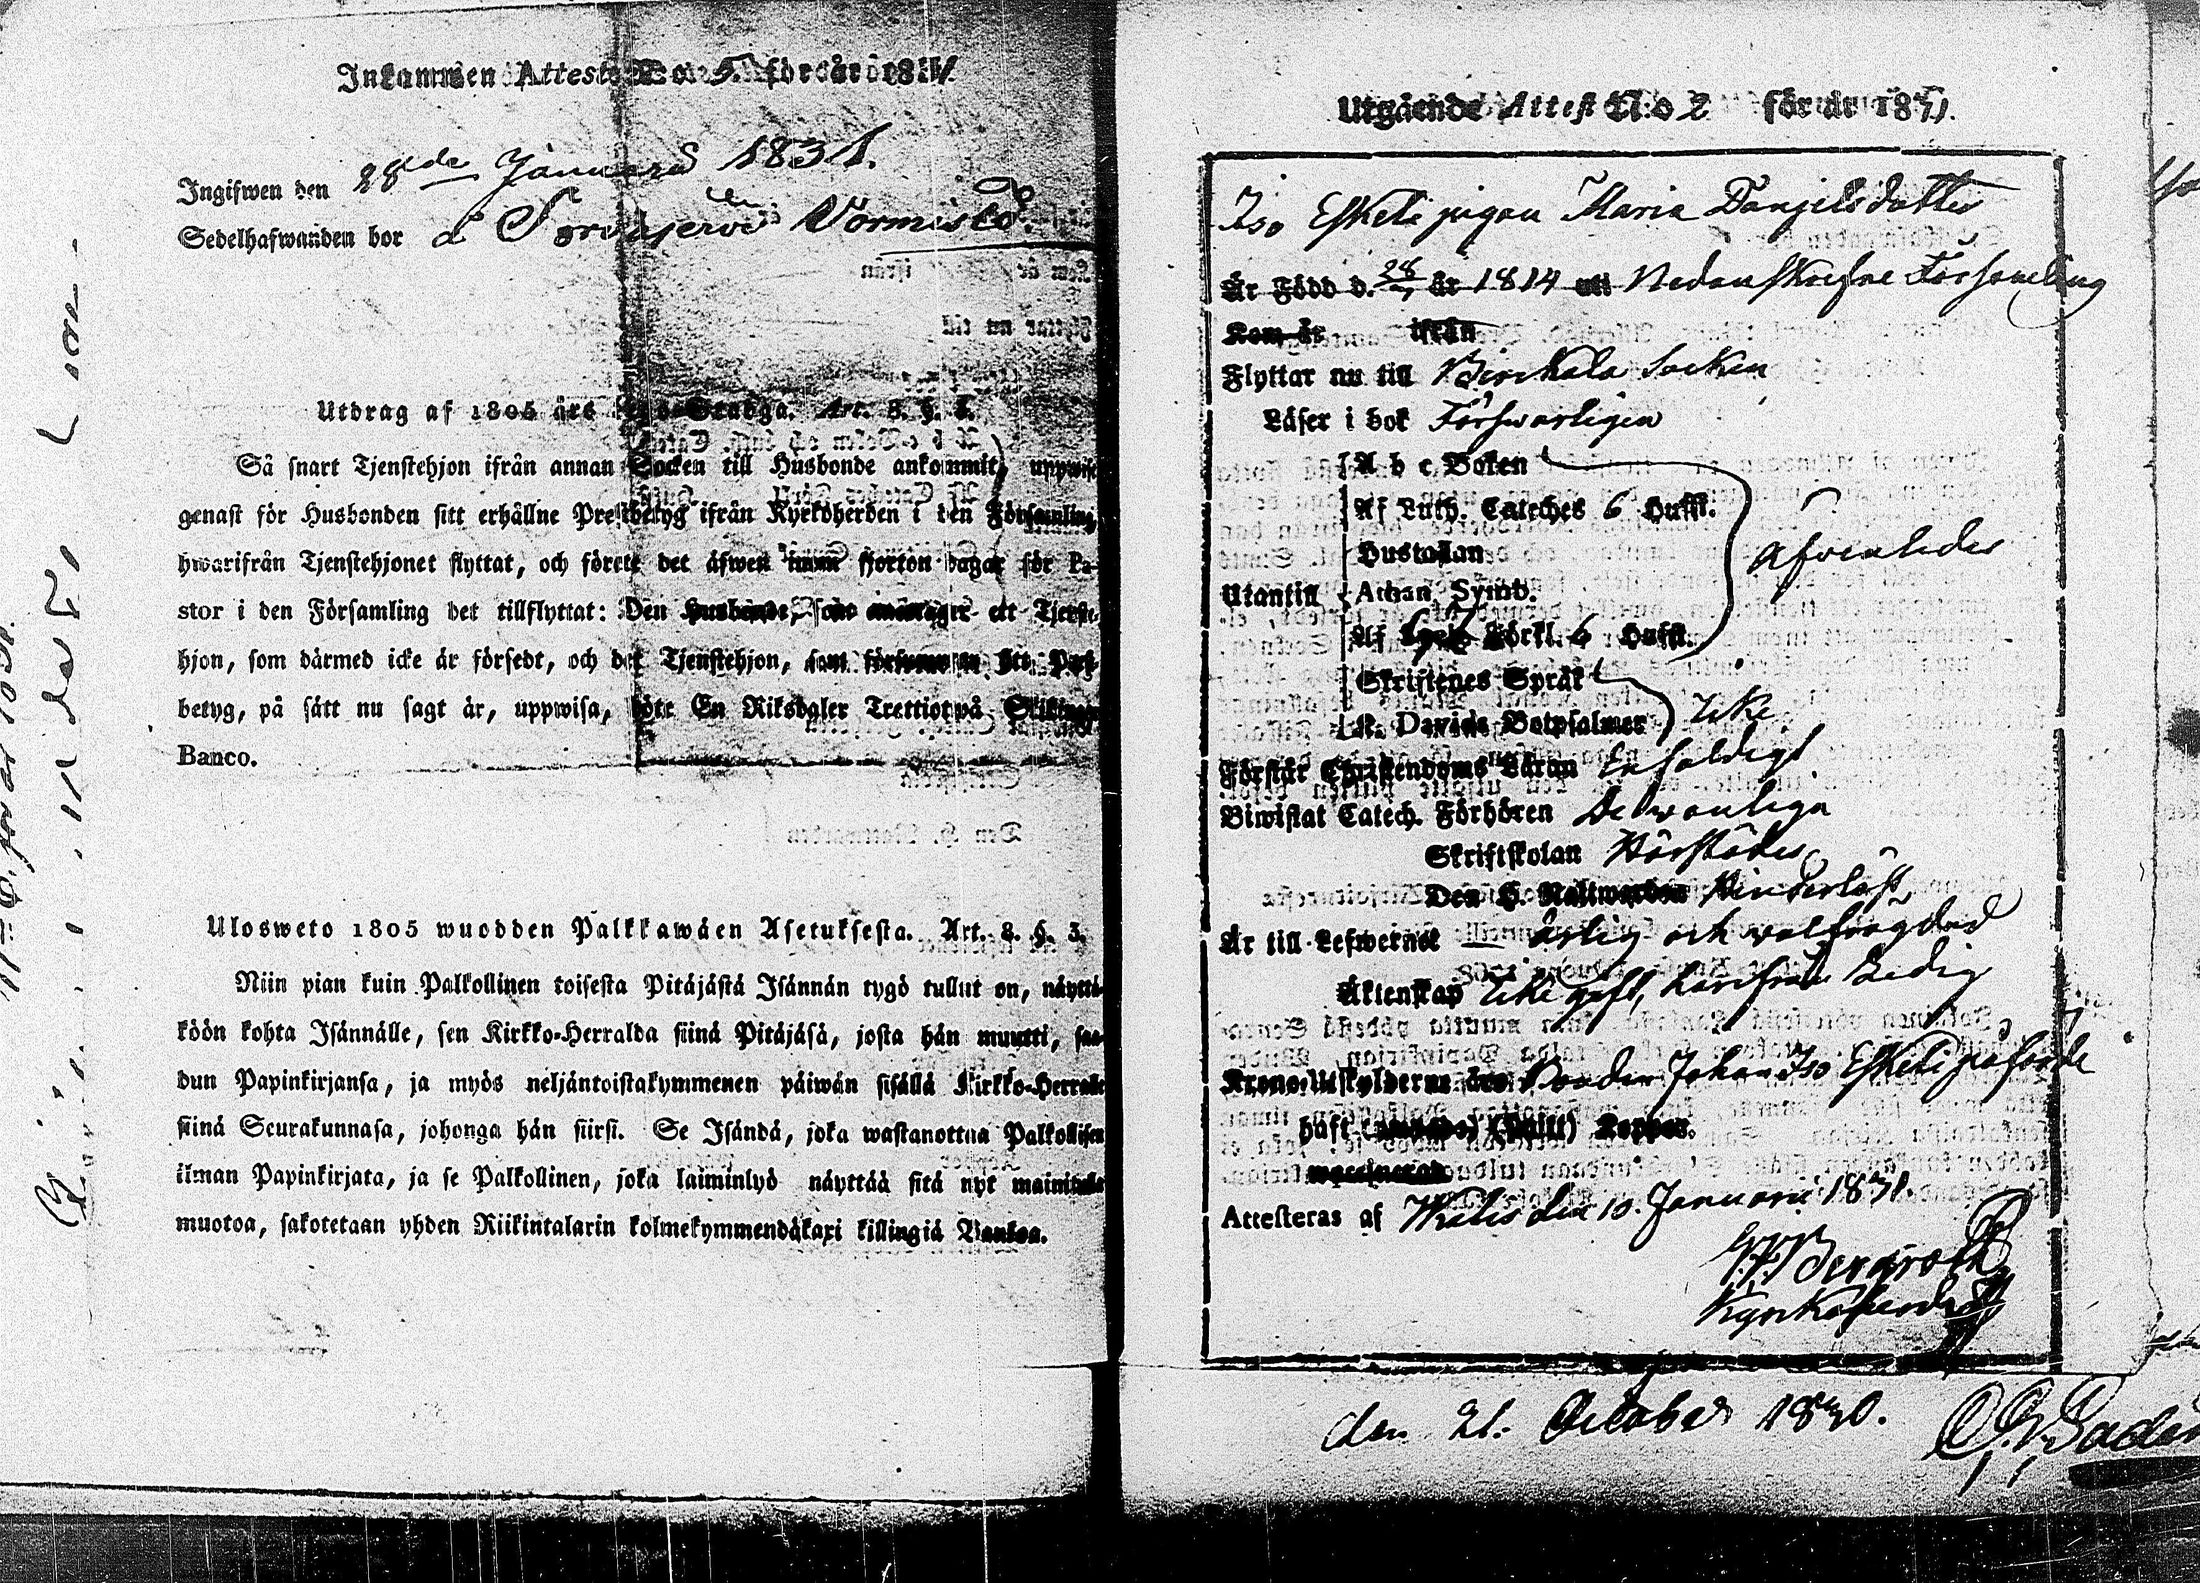 Inkommen Attest N:o 5. för år 1831.
Ingifwen den 28de Januarii 1831.
Sedelhafwanden bor å Vormisto.
Utdrag af 1805 års Stadga. Art. 8. §. 3.
Så snart Tjenstehjon ifrån annan Socken till Husbonde ankommit, uppwise
genast för Husbonden sitt erhållne Prestbetyg ifrån Kyrkoherden i den Församling,
hwarifrån Tjenstehjonet flyttat, och förete det äfwen inom fjorton dagar för Pa-
stor i den Församling det tillflyttat: Den Husbonde, som antager ett Tjenste-
hjon, som därmed icke är försedt, och det Tjenstehjon, som försummar att Prest-
betyg, på sätt nu sagt är, uppwisa, böte En Riksdaler Trettiotwå Skillingar
Banco.
Ulosweto 1805 wuodden Palkkawäen Asetuksesta. Art. 8. §. 3.
Niin pian kuin Palkollinen toisesta Pitäjästä Isännän tygö tullut on, näyttä-
köön kohta Isännälle, sen Kirkko-Herralda siinä Pitäjäsä, josta hän muutti, saa-
dun Papinkirjansa, ja myös neljäntoistakymmenen päiwän sisällä Kirkko-Herralle
siinä Seurakunnasa, johonga hän siirsi. Se Isändä, joka wastanottaa Palkollisen
ilman Papinkirjata, ja se Palkollinen, joka laiminlyö näyttää sitä nyt mainitulla
muotoa, sakotetaan yhden Riikintalarin kolmekymmendäkaxi killingiä Bankoa.
Utgående Attest N:o 2 för år 1831.
Iso Eskeli pigan Maria Danjelsdotter
Är Född d. 28 år 1814 uti Nedanskrefne Församling
Kom år ifrån
Flyttar nu till Birckala Socken
Läser i bok Försvarligen
A b c Boken
Af Luth. Cateches 6 Hufst.
Hustaflan
Utantill Athan. Symb.
Af Förkl. 6 Hufst.
Afvenledes
Skriftenes Språk
K. Davids Botpsalmer Icke
Förstår Christendoms Läran Enfaldigt
Biwistat Catech. Förhören De vanliga
Skriftskolan Härstädes
Den H. Nattwarden Hinderlöst
Är till Lefwernet — ärlig och välfrägdad
Äktenskap Icke gift, härifrån Ledig
Krono Utskylderne äro Bonden Johan Iso Eskeli påförde
Haft Koppor.
waccinerad
Attesteras af den 10 Januarii 1831.
Bergroth
Kyrkoherde
den 21. October 1830.